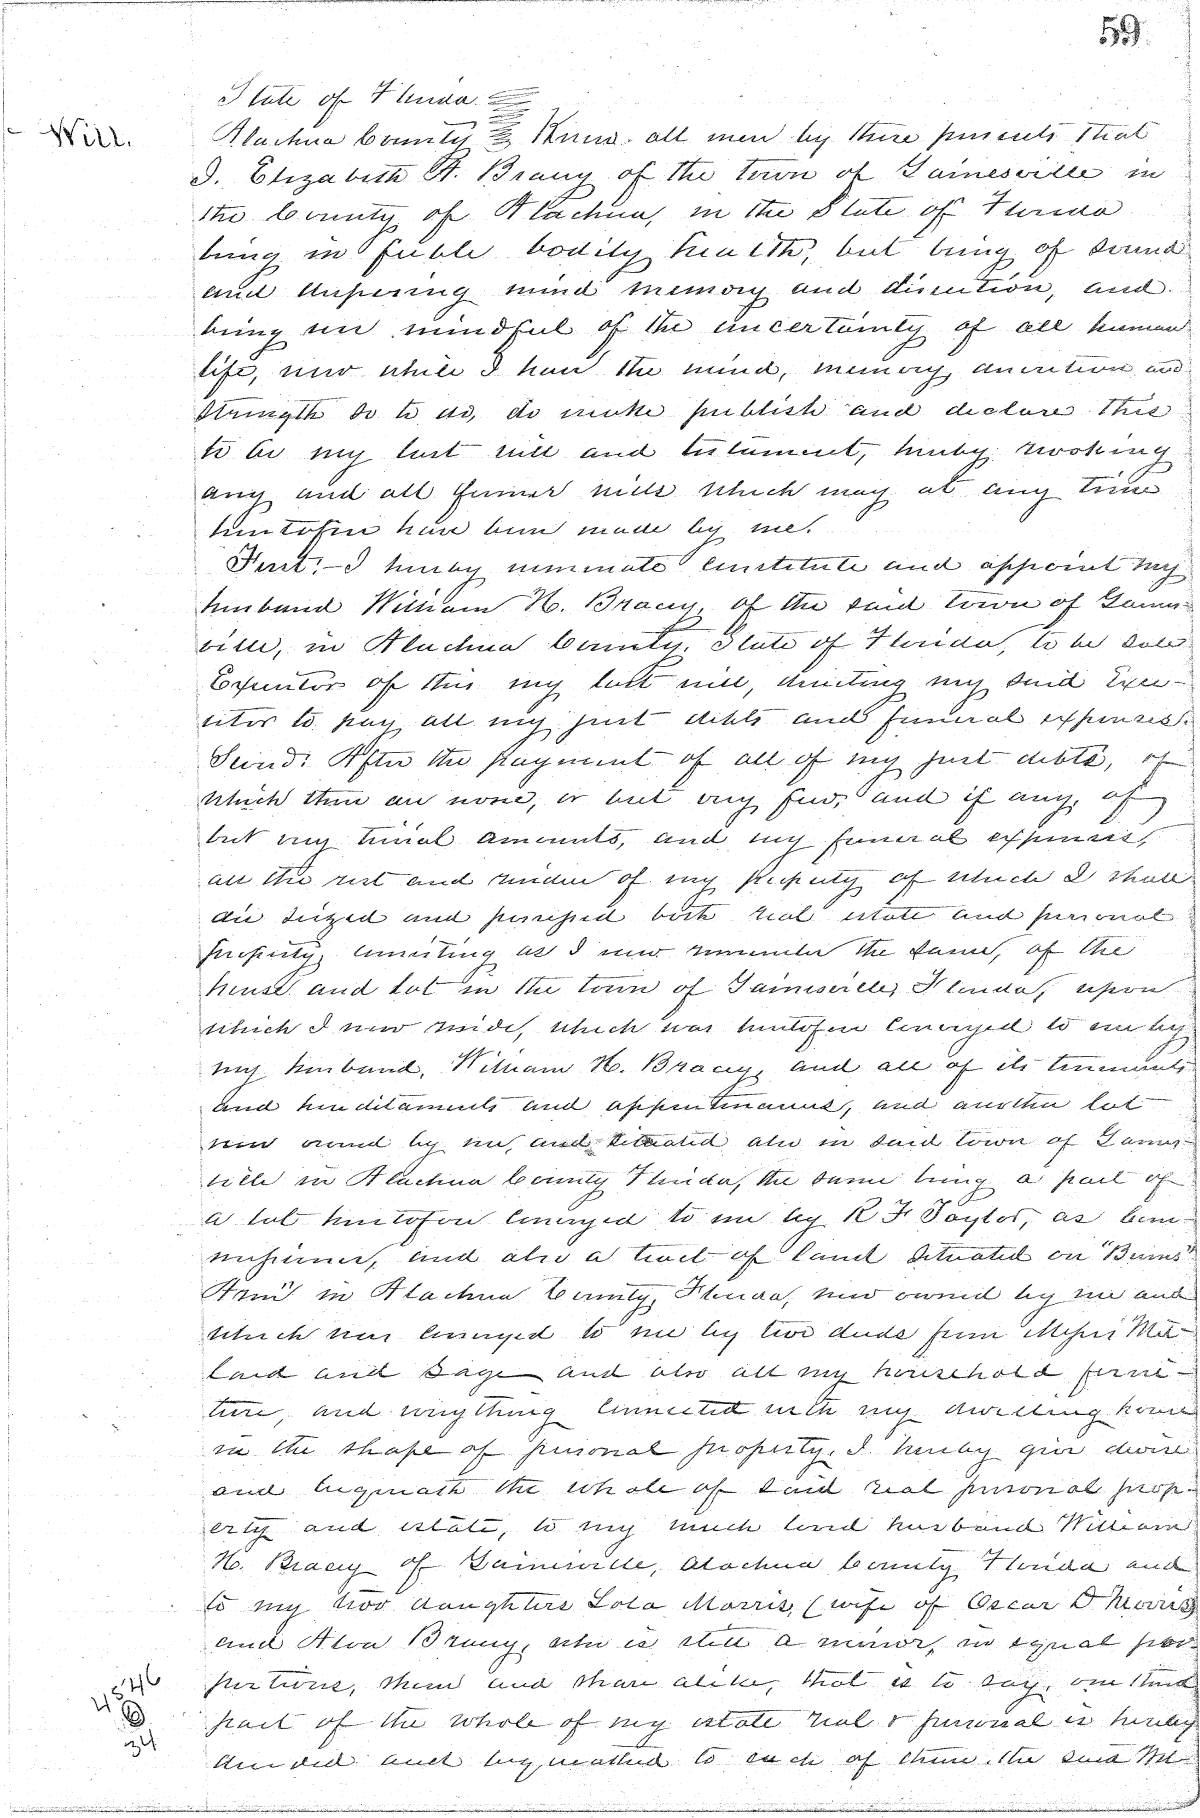 59.
State of Florida
Will.
Alachua County Know all men by these presents that
I, Elizabeth A. Bracy of the town of Gainesville in
the County of Alachua, in the State of Florida
being in feeble bodily health, but being of sound
and disposing mind memory and discretion, and
being mindful of the uncertainty of all human
life, now while I have the mind, memory, discretion and
strength so to do, do make publish and declare this
to be my last will and testament, hereby revoking
any and all former wills which may at any time
heretofore have been made by me.
First:- I hereby nominate constitute and appoint my
husband William H. Bracy, of the said town of Gaines-
ville, in Alachua County, State of Florida, to be sole
Executor of this my last will, directing my said Exec-
utor to pay all my just debts and funeral expenses.
Second: After the payment of all of my just debts, of
which there are none, or but very few, and if any, of
but very trivial amounts, and my funeral expenses,
all the rest and residue of my property of which I shall
die seized and possessed both real estate and personal
property, consisting as I now remember the same, of the
house and lot in the town of Gainesville, Florida, upon
which I now reside, which was heretofore conveyed to me by
my husband, William H. Bracy, and all of its tenements
and hereditaments and appurtenances, and another lot
now owned by me, and situated also in said town of Gaines-
ville in Alachua County Florida, the same being a part of
a lot heretofore conveyed to me by R F Taylor, as Com-
missioner, and also a tract of land situated on
in Alachua County, Florida, now owned by me and
which was conveyed to me by two deeds from Messrs
and Sage and also all my household furni-
ture, and everything connected with my dwelling house
in the shape of personal property. I hereby give devise
and bequeath the whole of said real personal prop-
erty and estate, to my much loved husband William
H. Bracy of Gainesville, Alachua County Florida and
to my two daughters Lola Morris, (wife of Oscar D Morris)
and Alva Bracy, who is still a minor, in equal pro-
portions, share and share alike, that is to say, one third
part of the whole of my estate real & personal is hereby
and bequeathed to each of them. the said Wil-
4546
34